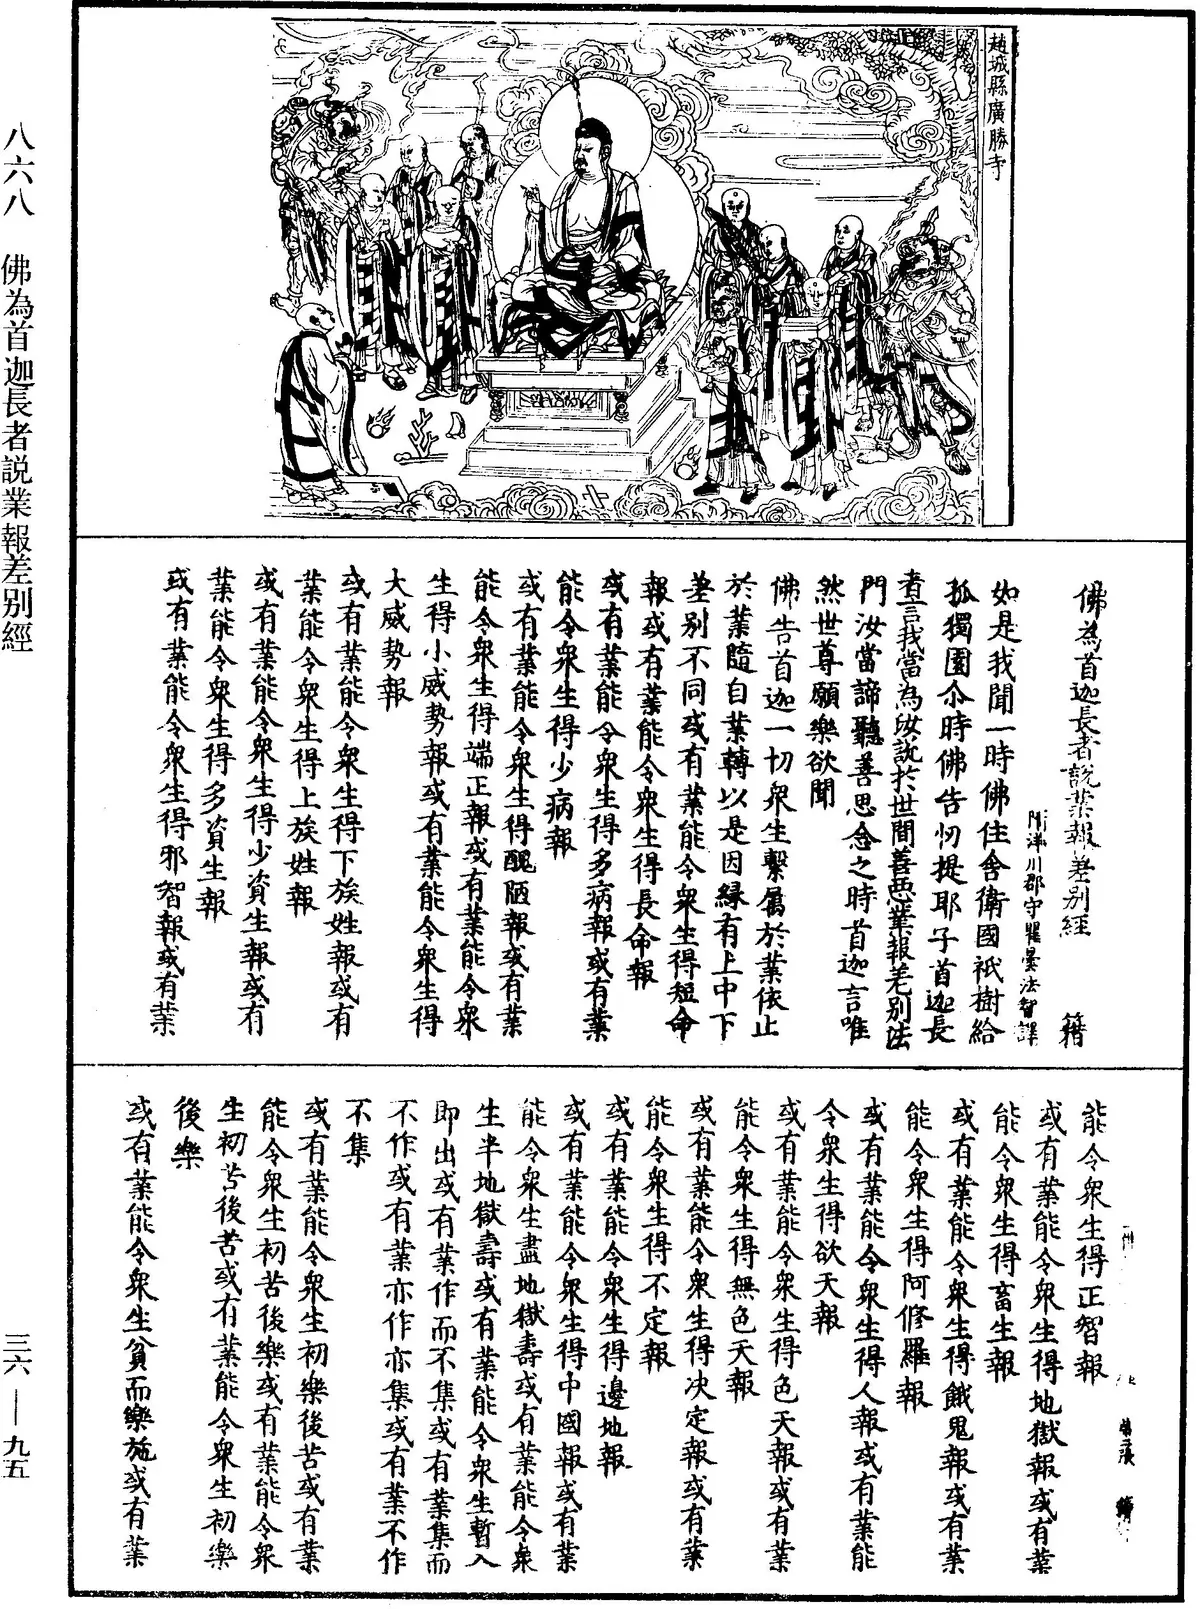 趙城縣廣勝寺
佛為首迦長者說業報差別經　籍
隋洋川郡守瞿曇法智譯
如是我聞一時佛住舍衛國祇樹給
孤獨園尒時佛告忉提耶子首迦長
者言我當為汝說於世間善惡業報差別法
門汝當諦聽善思念之時首迦言唯
然世尊願樂欲聞
佛告首迦一切衆生繫屬於業依止
於業隨自業轉以是因緣有上中下
差別不同或有業能令衆生得短命
報或有業能令衆生得長命報
或有業能令衆生得多病報或有業
能令衆生得少病報
或有業能令衆生得醜陋報或有業
能令衆生得端正報或有業能令衆
生得小威勢報或有業能令衆生得
大威勢報
或有業能令衆生得下族姓報或有
業能令衆生得上族姓報
或有業能令衆生得少資生報或有
業能令衆生得多資生報
或有業能令衆生得邪智報或有業
能令衆生得正智報
或有業能令衆生得地獄報或有業
能令衆生得畜生報
或有業能令衆生得餓鬼報或有業
能令衆生得阿修羅報
或有業能令衆生得人報或有業能
令衆生得欲天報
或有業能令衆生得色天報或有業
能令衆生得無色天報
或有業能令衆生得決定報或有業
能令衆生得不定報
或有業能令衆生得邊地報
或有業能令衆生得中國報或有業
能令衆生盡地獄壽或有業能令衆
生半地獄壽或有業能令衆生暫入
即出或有業作而不集或有業集而
不作或有業亦作亦集或有業不作
不集
或有業能令衆生初樂後苦或有業
能令衆生初苦後樂或有業能令衆
生初苦後苦或有業能令衆生初樂
後樂
或有業能令衆生貧而樂施或有業
八六八　佛為首迦長者説業報差别經
三六—九五